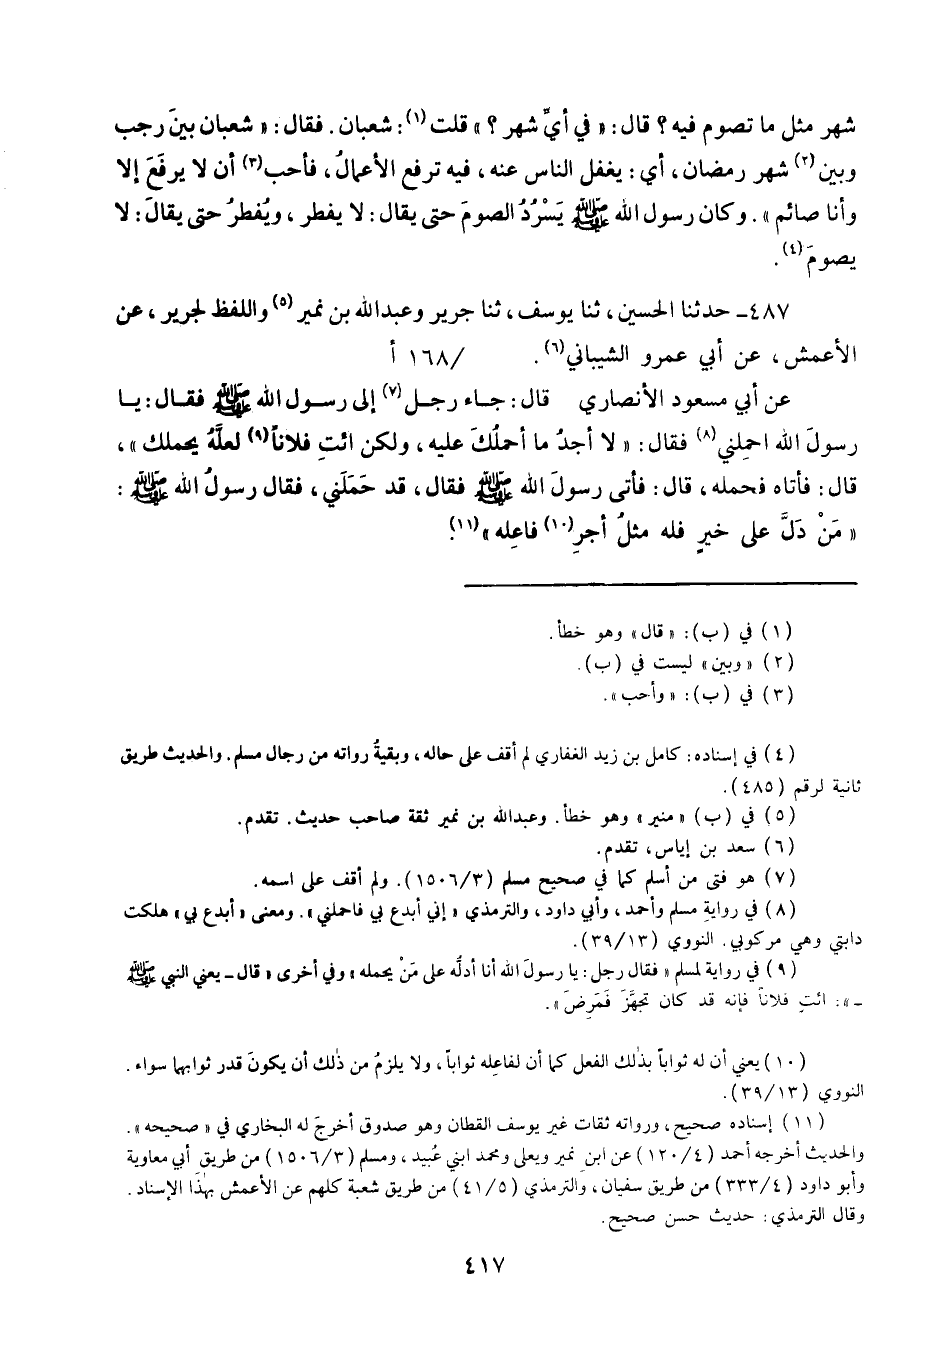 شهر مثل ما تصوم فيه؟ قال: « في أيِّ شهر ؟ » قلت (١): شعبان. فقال: « شعبان بينَ رجب
وبين (٢) شهر رمضان، أي: يغفل الناس عنه، فيه ترفع الأعمالُ، فأحب(٣) أن لا يرفَعَ إلا
وأنا صائم ». وكان رسول الله ﷺ يَسْرُدُ الصومَ حتى يقال: لا يفطر، ويُفطرُ حتى يقالَ: لا
يصومَ (٤).
٤٨٧ـ حدثنا الحسين، ثنا يوسف، ثنا جرير وعبدالله بن نمير (٥) واللفظ لجرير، عن
الأعمش، عن أبي عمرو الشيباني(٦). /١٦٨ أ
عن أبي مسعود الأنصاري قال: جـاء رجـل (٧) إلى رسـول الله ﷺ فقـال: يـا
رسولَ الله احمِلني (٨) فقال: « لا أجدُ ما أحملُكَ عليه، ولكن ائتِ فلاناً(٩) لعلَّهُ يحملك »،
قال: فأتاه فحمله، قال: فأتى رسولَ الله ﷺ فقال، قد حَمَلَني، فقال رسولُ الله ﷺ :
« مَنْ دَلَّ على خيرٍ فله مثلُ أجرِ (١٠) فاعِله » (١١).
(١) في (ب): « قال » وهو خطأ.
(٢) « وبين » ليست في (ب).
(٣) في (ب): « وأحب ».
(٤) في إسناده: كامل بن زيد الغفاري لم أقف على حاله، وبقيةُ رواته من رجال مسلم. والحديث طريق
ثانية لرقم (٤٨٥).
(٥) في (ب) « منير » وهو خطأ. وعبدالله بن نمير ثقة صاحب حديث. تقدم.
(٦) سعد بن إياس، تقدم.
(٧) هو فتى من أسلم كما في صحيح مسلم (١٥٠٦/٣). ولم أقف على اسمه.
(٨) في روايةِ مسلم وأحمد، وأبي داود، والترمذي « إني أبدع بي فاحملني ». ومعنى « أبدع بي » هلكت
دابتي وهي مركوبي. النووي (٣٩/١٣).
(٩) في رواية لمسلم « فقال رجل: يا رسولَ الله أنا أدلُّه على مَنْ يحمله » وفي أخرى « قال ـ يعني النبي ﷺ
ـ »: ائتِ فلاناً فإنه قد كان تجهَّزَ فَمَرِضَ ».
(١٠) يعني أن له ثواباً بذٰلك الفعل كما أن لفاعِله ثواباً، ولا يلزمُ من ذٰلك أن يكونَ قدر ثوابهما سواء.
النووي (٣٩/١٣).
(١١) إسناده صحيح، ورواته ثقات غير يوسف القطان وهو صدوق أخرجَ له البخاري في « صحيحه ».
والحديث أخرجه أحمد (١٢٠/٤) عن ابن نمير ويعلى ومحمد ابني عُبيد، ومسلم (١٥٠٦/٣) من طريقِ أبي معاوية
وأبو داود (٣٣٣/٤) من طريق سفيان، والترمذي (٤١/٥) من طريق شعبة كلهم عن الأعمش بهٰذا الإسناد.
وقال الترمذي: حديث حسن صحيح.
٤١٧